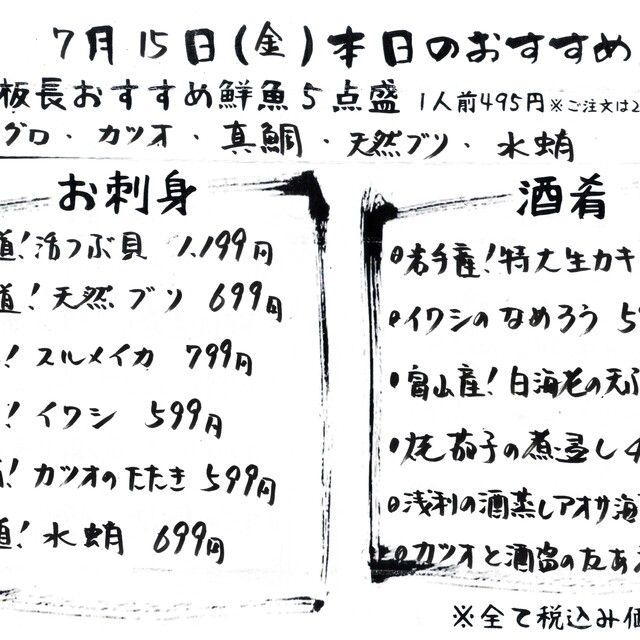 7月15日(金)本日のおすすめ
板長おすすめ鮮魚5点盛 1人前495円※ご注文は2
グロ・カツオ・真鯛・天然ブリ・水蛸
お刺身
道!活つぶ貝 1,199円
道!天然ブリ 699円
!スルメイカ 799円
!イワシ 599円
!カツオのたたき 599円
道!水蛸 699円
酒肴
岩手産!特大生カキ
イワシのなめろう 5
富山産!白海老の天ぷ
茄子の煮浸し 4
浅利の酒蒸しアオサ海
カツオと酒盗のたあ
※全て税込み価